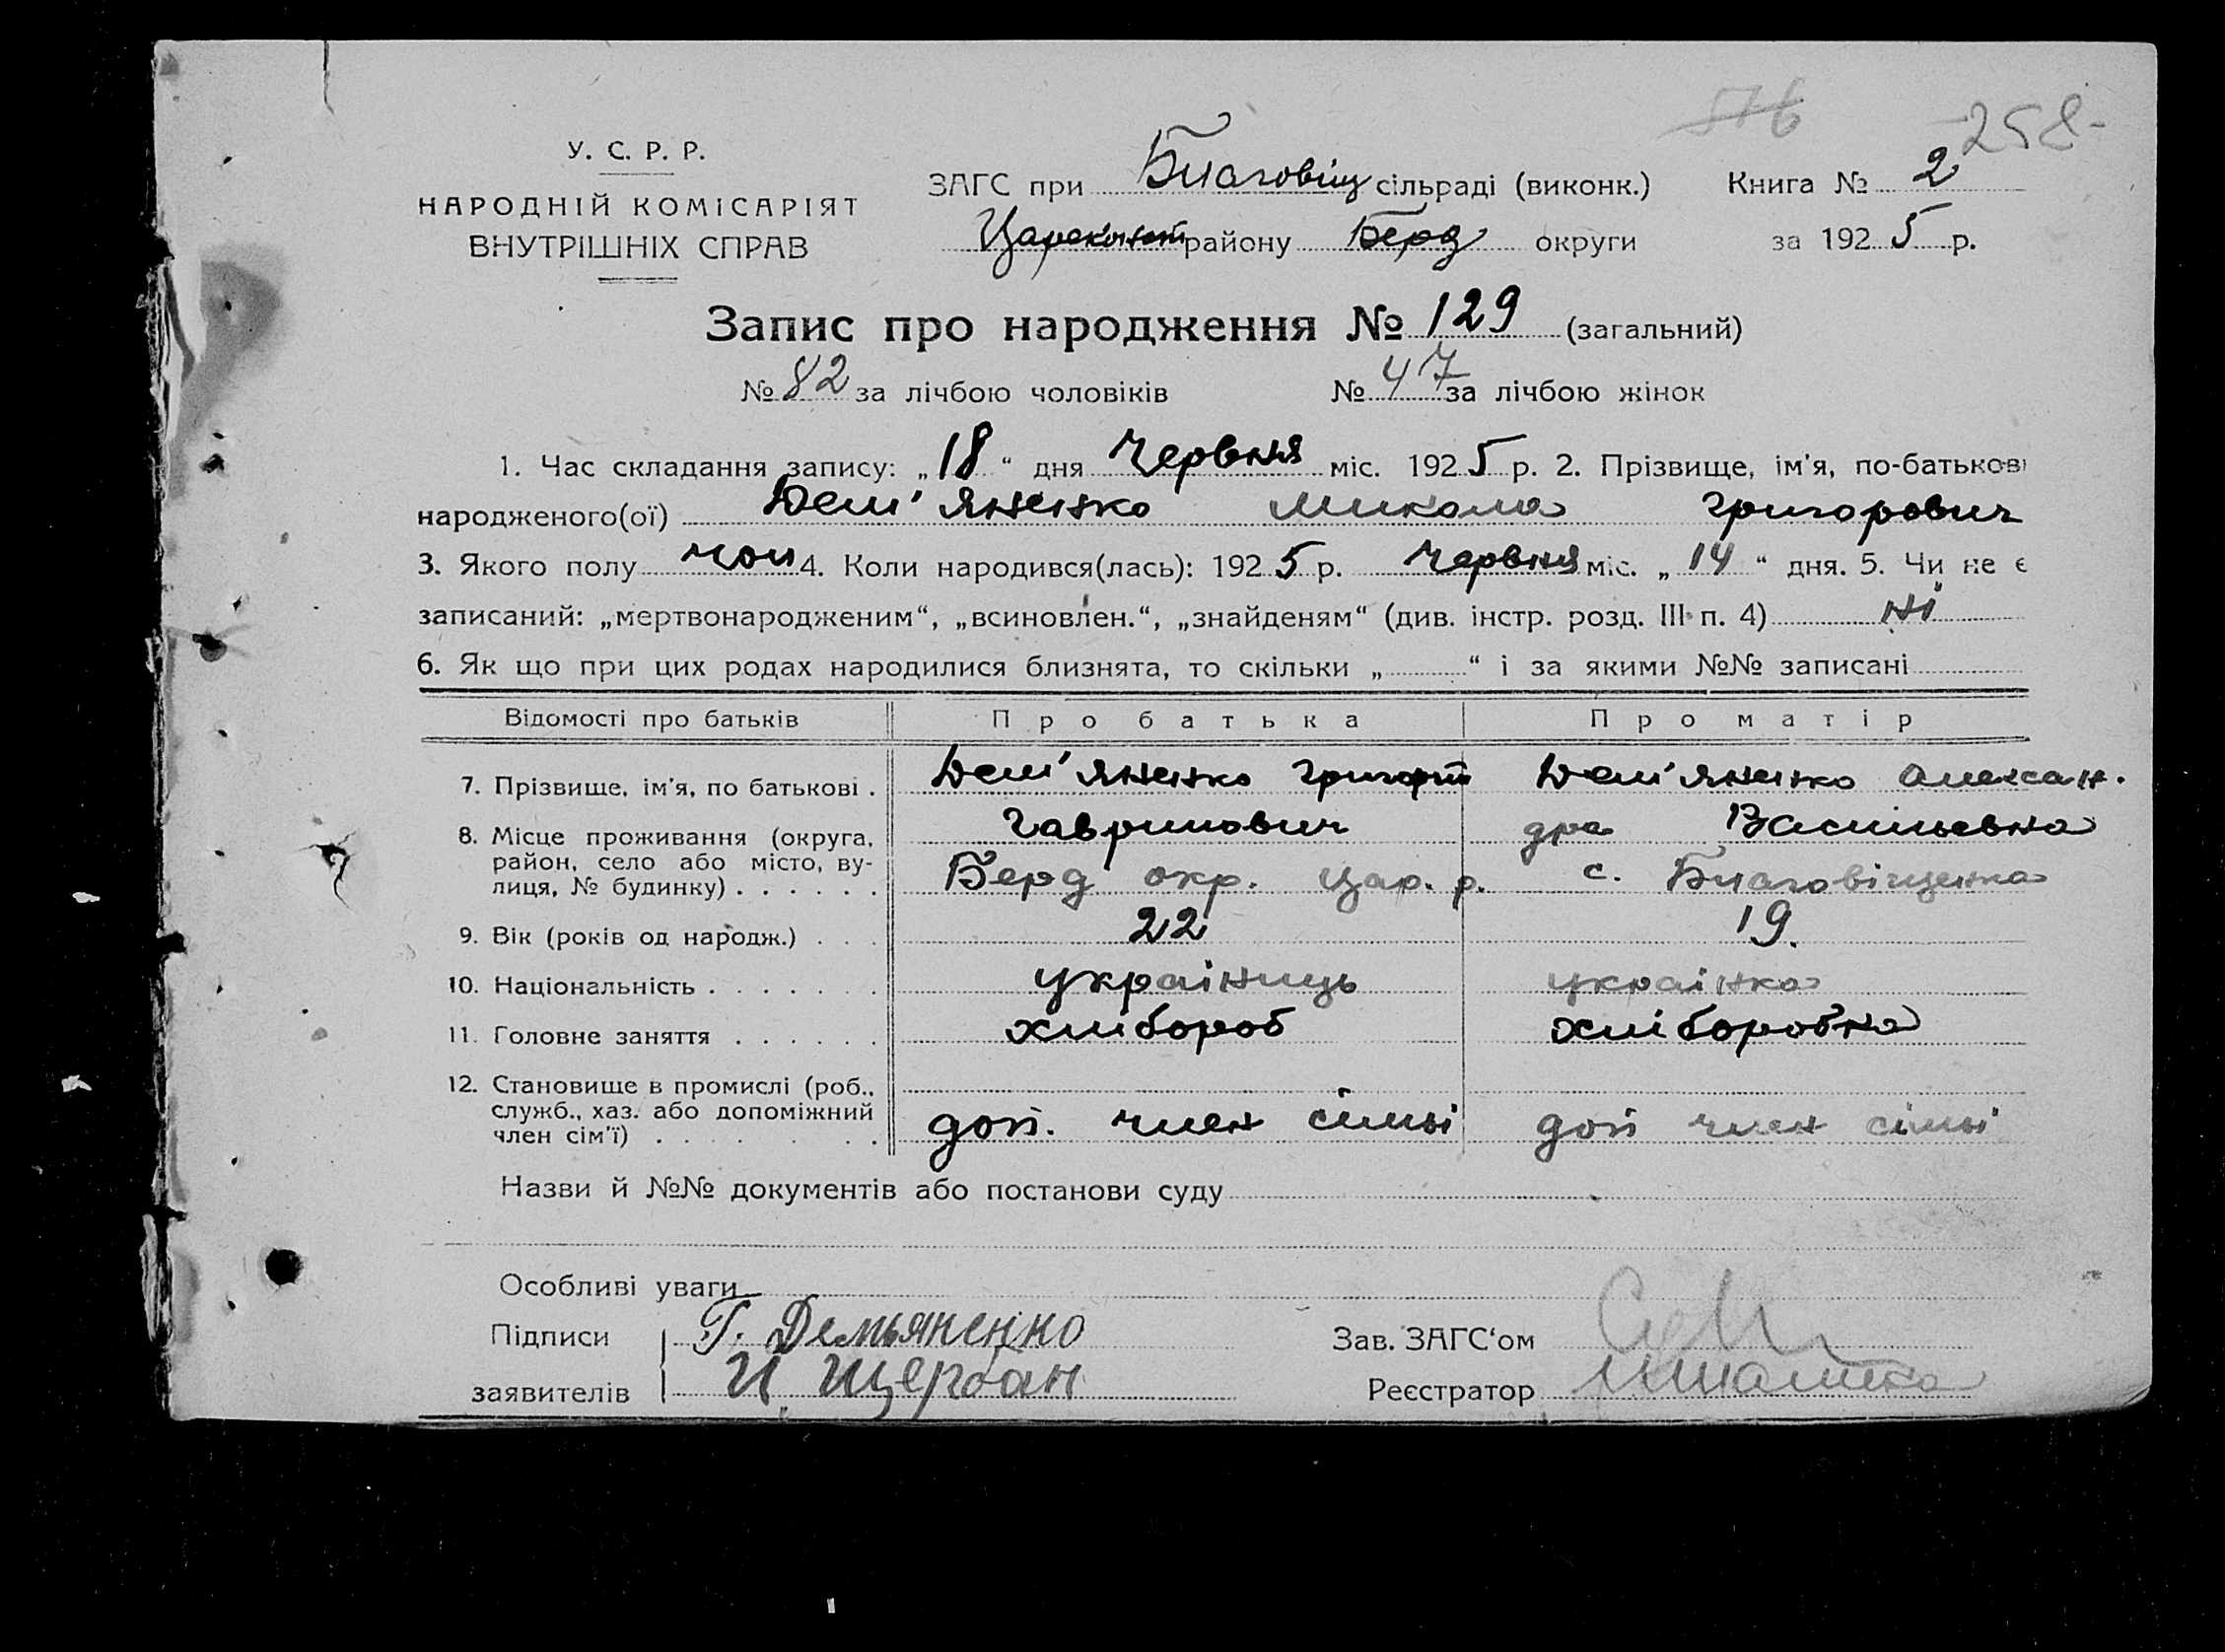 576 -258-
У. С. Р. Р.
НАРОДНІЙ КОМІСАРІЯТ
ВНУТРІШНІХ СПРАВ
ЗАГС при Благовіщ сільраді (виконк.) Книга № 2
Царекост району Берд округи за 1925 р.
Запис про народження № 129 (загальний)
№ 82 за лічбою чоловіків № 47 за лічбою жінок
1. Час складання запису: „18“ дня Червня міс. 1925 р. 2. Прізвище, ім'я, по-батькові
народженого(ої) Дем'яненко Микола Григорович
3. Якого полу чол 4. Коли народився(лась): 1925 р. Червня міс. „14“ дня. 5. Чи не є
записаний: „мертвонародженим“, „всиновлен.“, „знайденям“ (див. інстр. розд. III п. 4) ні
6. Як що при цих родах народилися близнята, то скільки „ “ і за якими №№ записані
Відомості про батьків Про батька Про матір
7. Прізвище, ім'я, по батькові . Дем'яненко Григорій Дем'яненко Олексан.
Гаврилович дра Васильевна
8. Місце проживання (округа,
район, село або місто, ву-
лиця, № будинку) . . . . . . Берд окр. Цар. р. с. Благовіщенка
9. Вік (років од народж.) . . . 22 19.
10. Національність . . . . . . . украіниць украінка
11. Головне заняття . . . . . . хлібороб хліборобка
12. Становище в промислі (роб.,
служб., хаз. або допоміжний
член сім'ї) . . . . . . . . доп. член сімьі доп член сімьі
Назви й №№ документів або постанови суду
Особливі уваги
Підписи Г. Демьяненко Зав. ЗАГС‘ом
заявителів И. Щербан Реєстратор